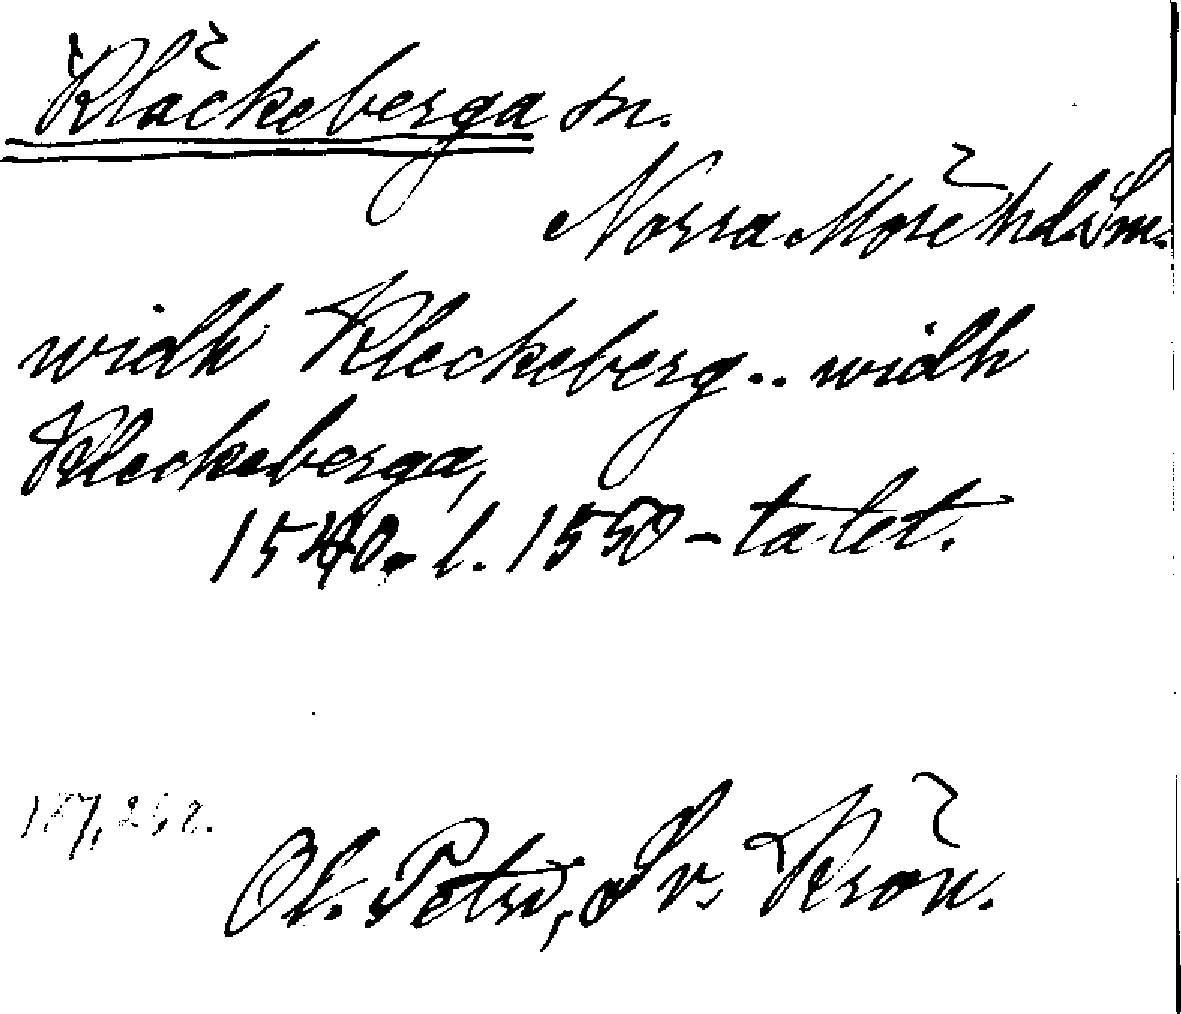 Kläckeberga sn.
Norra Möre hd. Sm.
widh Kleckeberg.. widh
Kleckeberga,
1540- l. 1550-talet.
Ol. Petri, Sv. Krön.